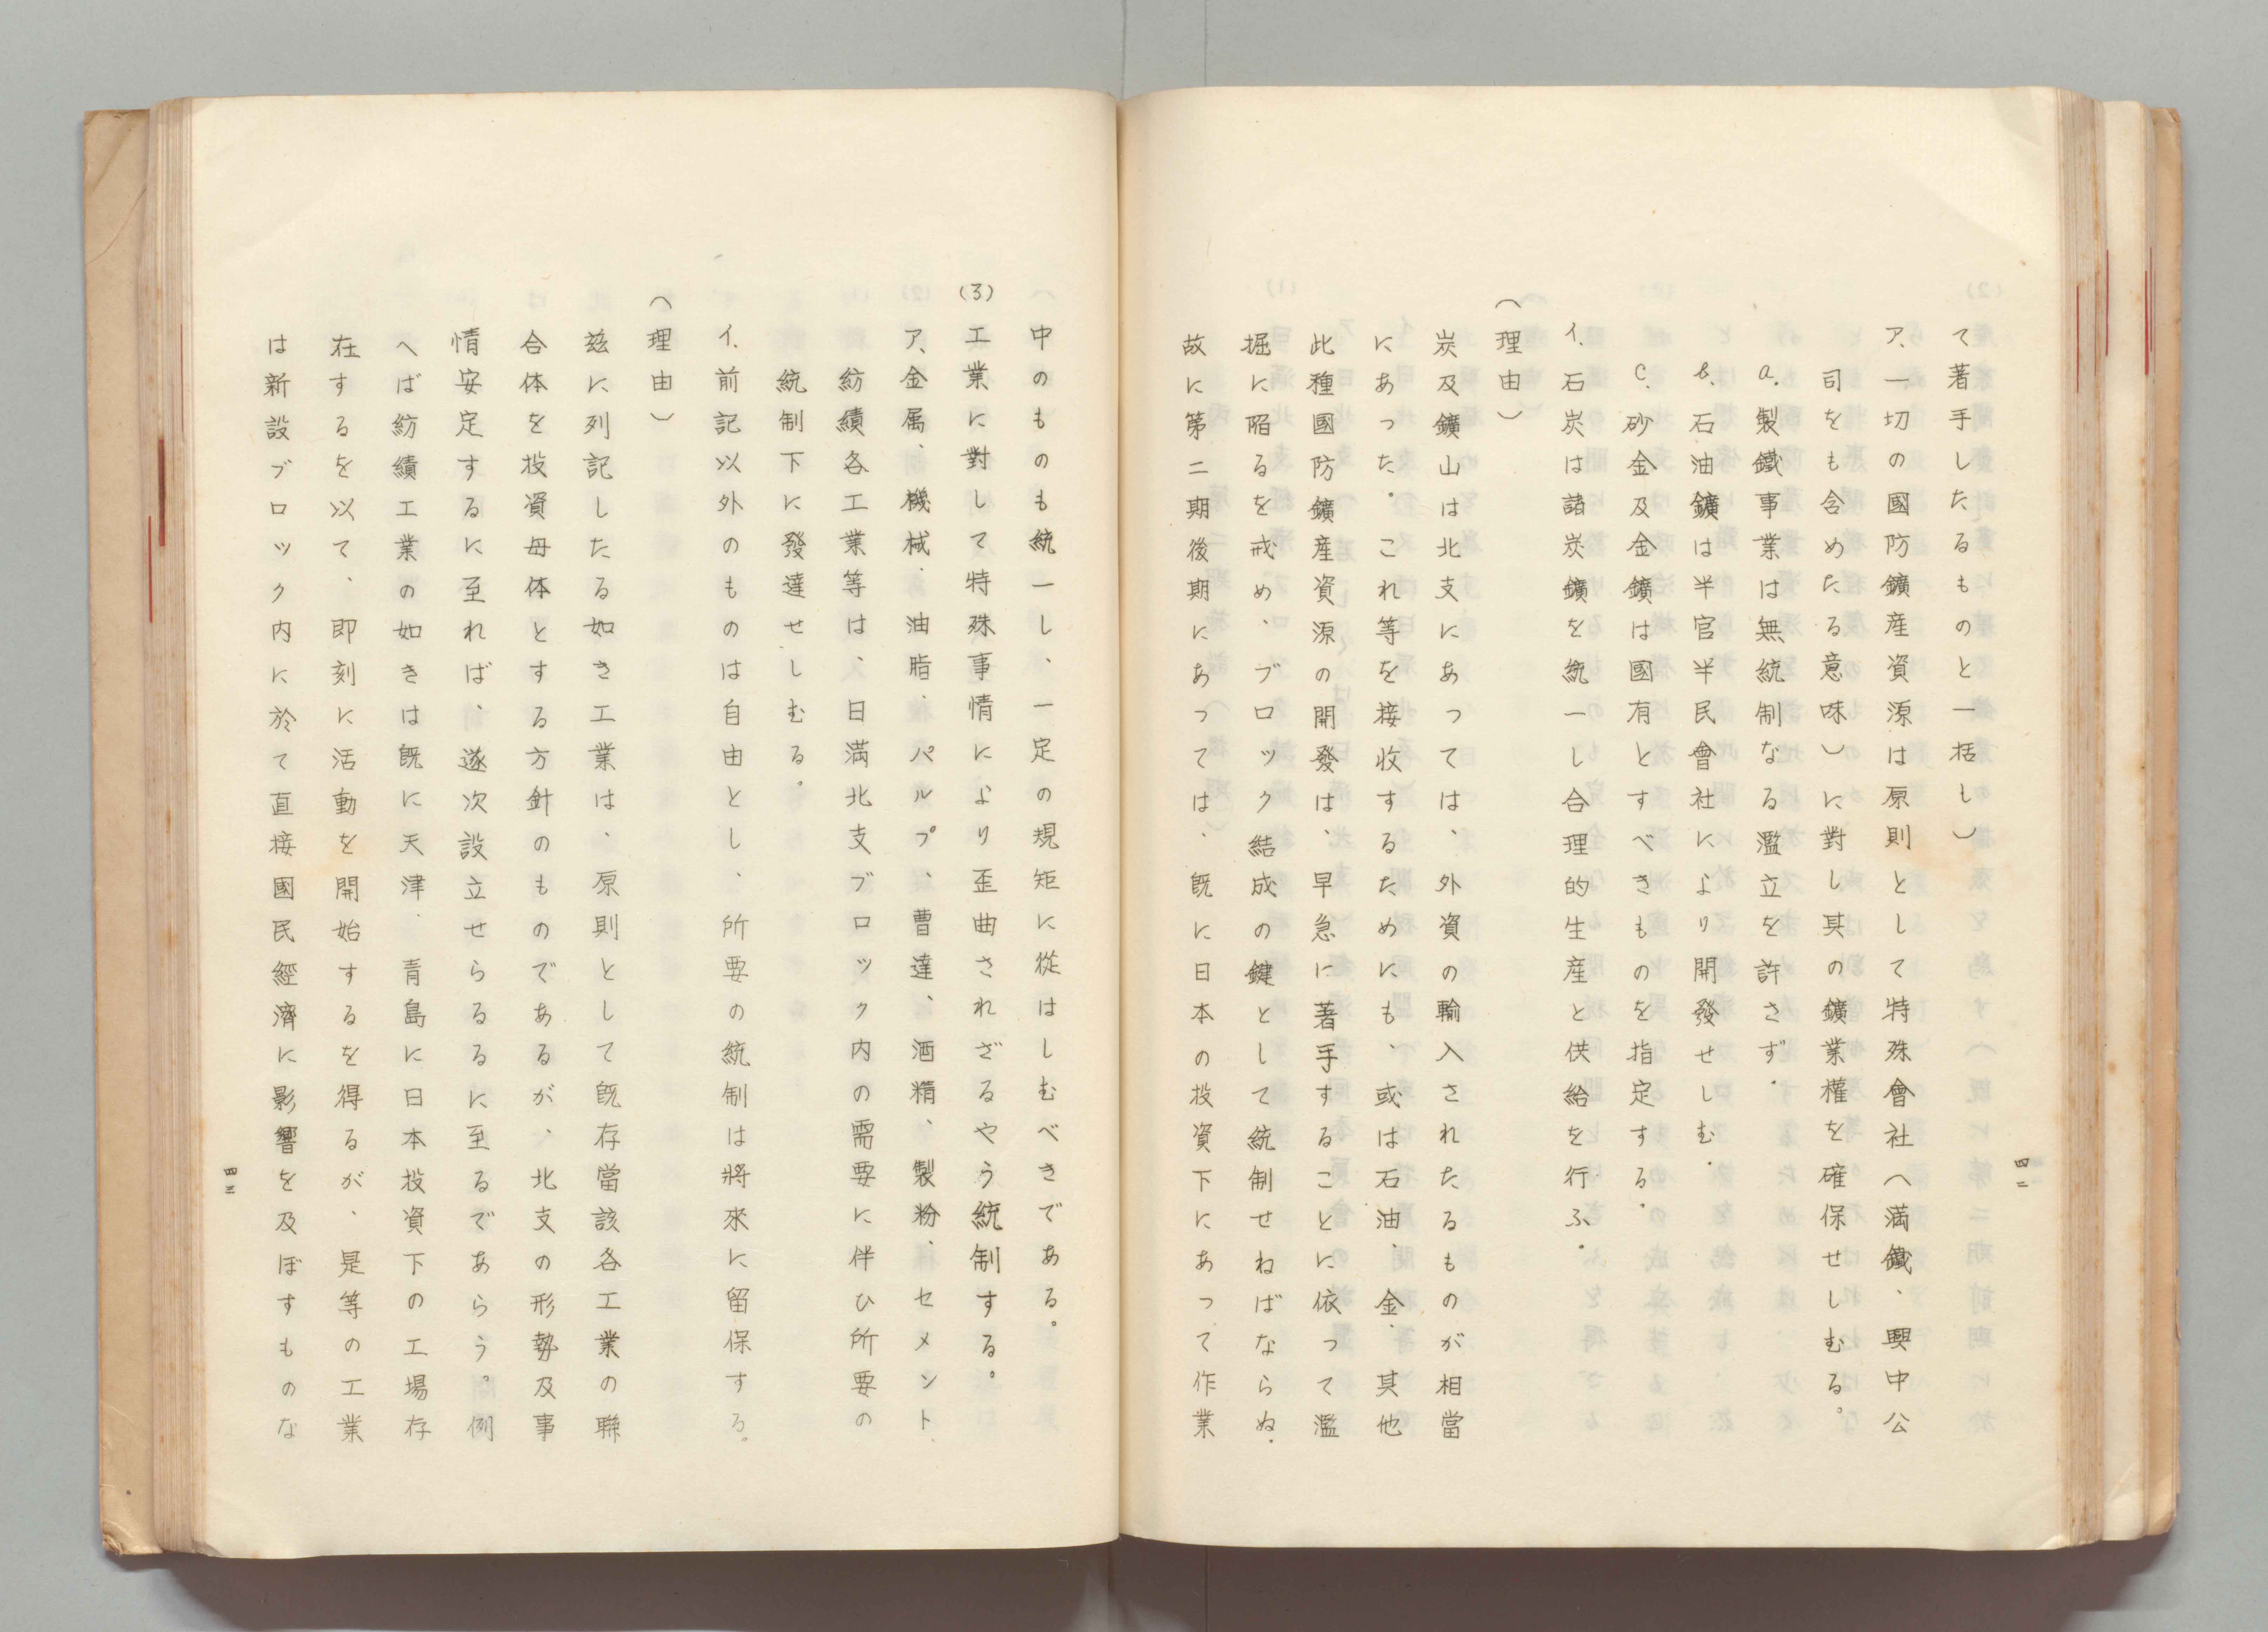 て著手したるものと一括し）
ア、一切の國防鑛産資源は原則として特殊會社へ満鐵、興中公
司をも含めたる意味）に對し其の鑛業權を確保せしむる。
a. 製鐵事業は無統制なる濫立を許さず.
b. 石油鑛は半官半民會社により開發せしむ.
c. 砂金及金鑛は國有とすべきものを指定する.
イ. 石炭は諸炭鑛を統一し合理的生産と供給を行ふ.
（理由）
炭及鑛山は北支にあつては、外資の輸入されたるものが相當
にあつた. これ等を接收するためにも、或は石油、金、其他
此種國防鑛産資源の開發は、早急に著手することに依つて濫
掘に陥るを戒め、ブロック結成の鍵として統制せねばならぬ.
故に第二期後期にあつては、既に日本の投資下にあつて作業
四二
中のものも統一し、一定の規矩に從はしむべきである。
(3) 工業に對して特殊事情により歪曲されざるやう統制する。
ア、金属、機械、油脂、パルプ、曹達、酒精、製粉、セメント、
紡績各工業等は、日満北支ブロック内の需要に伴ひ所要の
統制下に發達せしむる。
イ. 前記以外のものは自由とし、所要の統制は將來に留保する。
（理由）
玆に列記したる如き工業は、原則として既存當該各工業の聯
合体を投資母体とする方針のものであるが、北支の形勢及事
情安定するに至れば、逐次設立せらるるに至るであらう。例
へば紡績工業の如きは既に天津、青島に日本投資下の工場存
在するを以て、即刻に活動を開始するを得るが、是等の工業
は新設ブロック内に於て直接國民經濟に影響を及ぼすものな
四三